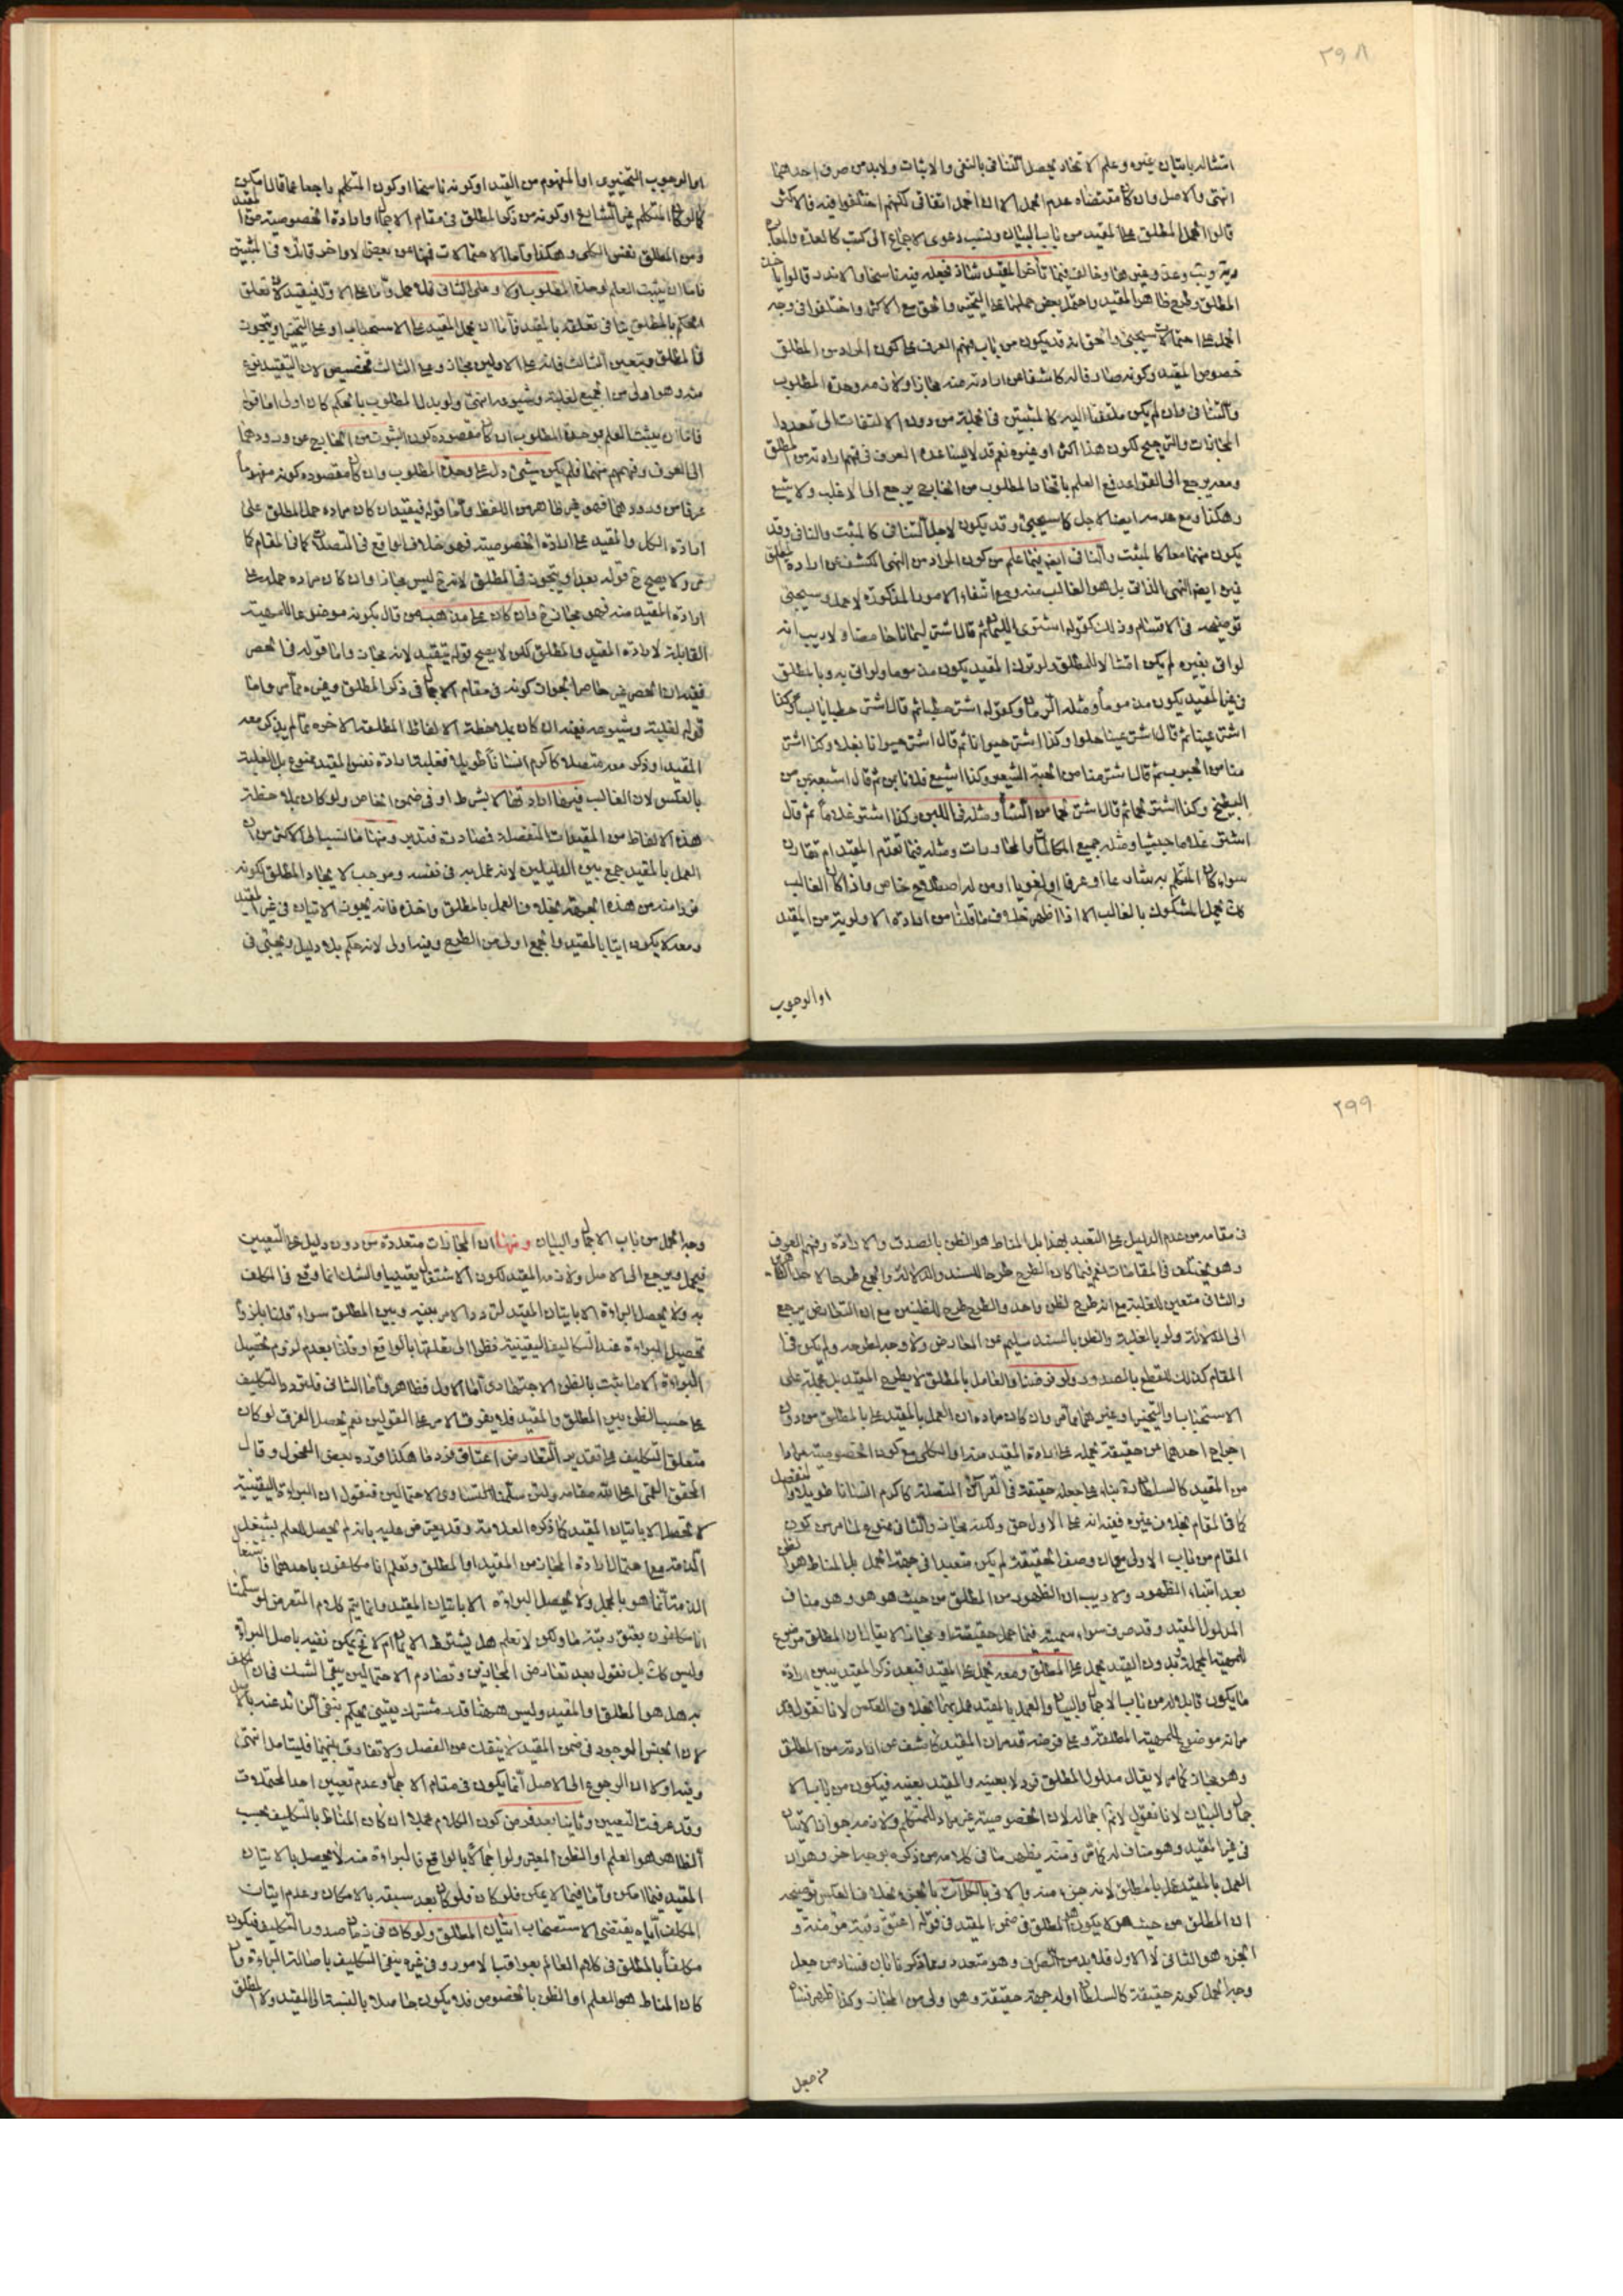 ٢٩٨
امتثاله باتيان غيره وعلم الاتحاد يحصل التنافى بالنفى والاثبات ولا بد من صرف احدهما
انتهى والاصل وان كان مقتضاه عدم الحمل الا ان الحمل اتفاقى لكنهم اختلفوا فيه فالاكثر
قالوا الحمل المطلق على المقيد من باب البيان ونسب دعوى الاجماع الى كتب كالعدة والمعالم
وغيرهما وخالف فيما تأخر المقيد شاذ فجعله فيه ناسخا والاندر قالوا
المطلق وطرح ظاهر المقيد واحتمل بعض حملهما على التخيير والحق مع الاكثر واختلفوا فى وجه
الحمل على احتمالات سيجئ والحق انه قد يكون من باب فهم العرف على كون المراد من المطلق
خصوص المقيد وكونه صار قاله كاشفا من ارادته منه مجازا ولازمه وحدة المطلوب
والتنافى وان لم يكن ملتفتا اليه كالمثبتين فى الجملة من دون الالتفات الى تعدد
المجازات والترجيح لكون هذا اكثر او غيره نعم قد لا يساعده العرف فى فهم ارادته من المطلق
ومعه يرجع الى القواعد فمع العلم باتحاد المطلوب من الخارج يرجع الى الاغلب والاشيع
وهكذا ومع عدمه ايضا لاجل كما سيجئ وقد يكون لاجل التنافى كالمثبت والنافى وقد
يكون منهما معا كالمثبت والنافى ايضا فيما علم من كون المراد من النهى الكشف عن ارادة المطلق
فى ايضا النهى الذاتى بل هو الغالب منه ومع انتفاء الامور المذكورة لا حمل وسيجئ
توضيحه فى الاقسام وذلك كقوله اشترى اللبن ثم قال اشتر لبنا خامضا ولا ريب انه
لو اتى بغيره لم يكن امتثالا للمطلق ولو ترك المقيد يكون مذموما ولو اتى به وبالمطلق
فى غير المقيد يكون مذموما ومثله الرمان وكقوله اشتر حطبا ثم قال اشتر حطبا يابسا وكذا
اشتر عنبا ثم قال اشتر عنبا حلوا وكذا اشتر حيوانا ثم قال اشتر حيوانا بغلا وكذا اشتر
منا من الحبوب ثم قال اشتر منا من الحبة الشعير وكذا اشبع فلانا من ثم قال اشبعه من
البطيخ وكذا اشتر لحما ثم قال اشتر لحما من الشاة ومثله فى اللبن وكذا اشتر غلاما ثم قال
اشتر غلاما حبشيا ومثله جميع المكالمات والمحاورات ومثله فيما تقدم المقيد ام تقارن
سواء كان المتكلم به شارعا او عرفا او لغويا او من له اصطلاح خاص واذا كان الغالب
كك يحمل المشكوك بالغالب الا اذا ظهر خلاف ما قلنا من ارادة الاولوية من المقيد
او الوجوب
او الوجوب التخييرى او المفهوم من القيد او كونه ناسخا او كون المتكلم راجعا عما قال سابقا
كما لو كان المتكلم غير الشارع او كونه من ذكر المطلق فى مقام الاجمال وارادة الخصوصية من المقيد
ومن المطلق نفس الكلى وهكذا واما الاحتمالات فمنها من بعض الاواخر قال فى المثبتين
فاما ان يثبت العلم بوحدة المطلوب اولا وعلى الثانى فلا حمل واما على الاول فيقيد لان تعلق
الحكم بالمطلق ينافى تعلقه بالمقيد فاما ان يحمل المقيد على الاستحباب او على التخيير او يتجوز
فى المطلق ويتعين الثالث فانه على الاولين مجاز وعلى الثالث تخصيص لان التقييد نوع
منه وهو اولى من الجميع لغلبته وشيوعه انتهى ولو بدل المطلوب بالحكم كان اولى اما قوله
فاما ان يثبت العلم بوحدة المطلوب ان كان مقصوده كون الثبوت من الخارج من ورودهما
الى العرف وفهمهم منهما فلم يكن شئ دل على وحدة المطلوب وان كان مقصوده كونه مفهوما
عرفا من ورودهما فهو غير ظاهر من اللفظ واما قوله فيقيد ان كان مراده حمل المطلق على
ارادة الكل والمقيد على ارادة الخصوصية فهو خلاف الواقع فى المتصلات كما فى المقام كما
مر ولا يصح ح قوله بعد او يتجوز فى المطلق لانه ح ليس مجازا وان كان مراده حمله على
ارادة المقيد منه فهو مجاز ح وان كان على مذهبه من قال بكونه موضوعا للمهية
القابلة لارادة المقيد والمطلق لكن لا يصح قوله يتقيد لانه مجاز واما قوله فى الحصر
ففيه ان الحصر غير حاصر لجواز كونه فى مقام الاجمال فى ذكر المطلق وغيره مما مر واما
قوله لغلبته وشيوعه ففيه ان كان بملاحظة الالفاظ المطلقة الاخر مما لم يذكر معه
المقيد او ذكر معه متصلا كاكرم انسانا طويلا فغلبة ارادة نفس المقيد ممنوع بل الغلبة
بالعكس لان الغالب فيهما ارادتها لا بشرط او فى ضمن الخاص ولو كان بملاحظة
هذه الالفاظ من المقيدات المنفصلة فصادرة فتدبر ومنها ما نسب الى الاكثر من ان
العمل بالمقيد جمع بين الدليلين لانه عمل به فى نفسه وموجب لايجاد المطلق لكونه
فردا منه من هذه الجهة بخلاف العمل بالمطلق واخذه فانه يجوز الاتيان فى غير المقيد
ومعه لا يكون اتيا بالمقيد والجمع اولى من الطرح وفيه اولى لانه حكم بلا دليل ويجئ فى
٢٩٩
فى مقامه من عدم الدليل على التعبد بهذا بل المناط هو الظن بالصدق والارادة وفهم العرف
وهو يختلف فى المقامات نعم فيما كان الطرح طرحا للسند والدلالة والجمع طرحا لاحد
والثانى متعين للغلبة مع انه طرح لظن واحد والطرح طرح للظنين مع ان التعارض يرجع
الى الدلالة ولو بالغلبة والظن بالسند سليم عن المعارض ولا وجه لطرحه ولم يكن فى
المقام كذلك للقطع بالصدور ولو فرضنا والعامل بالمطلق لا يطرح المقيد بل يحمله على
الاستحباب والتخيير او غيرهما مما مر وان كان مراده ان العمل بالمقيد عمل بالمطلق من دون
اخراج احدهما من حقيقة يحمله على ارادة المقيد منه او الكلى مع كون الخصوصية مرادا
من المقيد كالسلطان بناء على جعله حقيقة فى القرائن المتصلة كاكرم انسانا طويلا والمنفصل
كما فى المقام بخلاف غيره ففيه انه على الاول حق ولكنه مجاز والثانى ممنوع لما مر من كون
المقام من باب الاولى مع ان وصف الحقيقة لم يكن متعبدا فى جهة الحمل بل المناط هو الظن
بعد انتفاء الظهور ولا ريب ان الظهور من المطلق من حيث هو هو وهو مناف
المدلول المقيد وقد صرف سواء سميته فيما حمل حقيقة او مجازا لا يقال ان المطلق موضوع
للمهية المجملة فبدون القيد يحمل على المطلق ومعه يحمل على المقيد فبعد ذكر المقيد يبين ارادة
ما يكون قابلا له من باب الاجمال والبيان والعمل بالمقيد عمل بهما بخلاف العكس لانا نقول قد
مر انه موضوع للمهية المطلقة وعلى فرضه قد مر ان المقيد كاشف عن ارادته من المطلق
وهو مجاز كما مر لا يقال مدلول المطلق فرد لا بعينه والمقيد بعينه فيكون من باب الا
جمال والبيان لانا نقول لا ثم اجمال لان الخصوصية غير مراد للمتكلم ولازمه جواز الاتيان
فى غير المقيد وهو مناف له كما مر ومنه يظهر ما فى كلامه من ذكره بوجه اخر وهو ان
العمل بالمقيد عمل بالمطلق لانه جزء منه والاتى بالكل آت بالجزء بخلاف العكس توضيحه
ان المطلق من حيث هو لا يكون المطلق فى ضمن المقيد فى قوله اعتق رقبة مؤمنة و
الجزء هو الثانى لا الاول فلا بد من التصرف وهو متعدد وما ذكرنا بان فساد من جعل
وجه الحمل كونه حقيقة كالسلطان او له جهة حقيقة وهو اولى من المجاز وكذا ظهر فساد
من جعل
وجه الحمل من باب الاجمال والبيان ومنها ان المجازات متعددة من دون دليل على التعيين
فيحمل ويرجع الى الاصل ولازمه المقيد لكون الاشتغال يقينيا والشك انما وقع فى المكلف
به ولا يحصل البراءة الا باتيان المقيد لتردد الامر بعينه وبين المطلق سواء قلنا بلزوم
تحصيل البراءة عند التكاليف اليقينية نظرا الى تعلقها بالواقع او قلنا بعدم لزوم تحصيل
البراءة الا ما يثبت بالظن الاجتهادى اما الاول فظاهر واما الثانى فلتردد التكليف
على حسب الظن بين المطلق والمقيد فلا يفرق الامر على القولين نعم يحصل الفرق لو كان
متعلق التكليف على تقدير التعارض اعتاق فرد ما هكذا قرره بعض الفحول وقال
المحقق القمى اعلى الله مقامه ولئن سلمنا تساوى الاحتمالين فنقول ان البراءة اليقينية
لا تحصل الا باتيان المقيد كما ذكره العلامة وقد يعترض عليه بانه لم يحصل العلم بشغل
الذمة مع احتمال ارادة المجاز من المقيد او المطلق ونعلم انا مكلفون باحدهما فاشتغال
الذمة انما هو بالمجمل ولا يحصل البراءة الا باتيان المقيد وانما يتم كلام المتعرض لو سلمنا
انا مكلفون بعتق رقبة ما ولكن لا نعلم هل يشترط الايمان ام لا ح يمكن نفيه باصل البراءة
وليس كك بل نقول بعد تعارض المجازين وتصادم الاحتمالين يبقى الشك فى ان المكلف
به هل هو المطلق او المقيد وليس ههنا قدر مشترك يقينى يحكم بنفى الزائد عنه بالاصل
لان الجنس الموجود فى ضمن المقيد لا ينفك عن الفصل ولا تفارق بينهما فليتامل انتهى
وفيه اولا ان الرجوع الى الاصل انما يكون فى مقام الاجمال وعدم تعيين احد المحتملات
وقد عرفت التعيين وثانيا بعد فرض كون الكلام مجملا ان كان المناط بالتكليف بحسب
الظاهر هو العلم او الظن المعتبر ولو اجمالا بالواقع فالبراءة منه لا يحصل بالاتيان
المقيد فيما امكن واما فيما لا يمكن فلو كان فلو كان بعد سبقه بالامكان وعدم اتيان
المكلف اياه يقتضى الاستصحاب اتيان المطلق ولو كان فى زمان صدور التكليف فيكون
مكلفا بالمطلق فى كلام العالم بعواقب الامور وفى غيره ينفى التكليف باصالة البراءة وان
كان المناط هو العلم او الظن بالخصوص فلا يكون حاصلا بالنسبة الى المقيد ولا المطلق